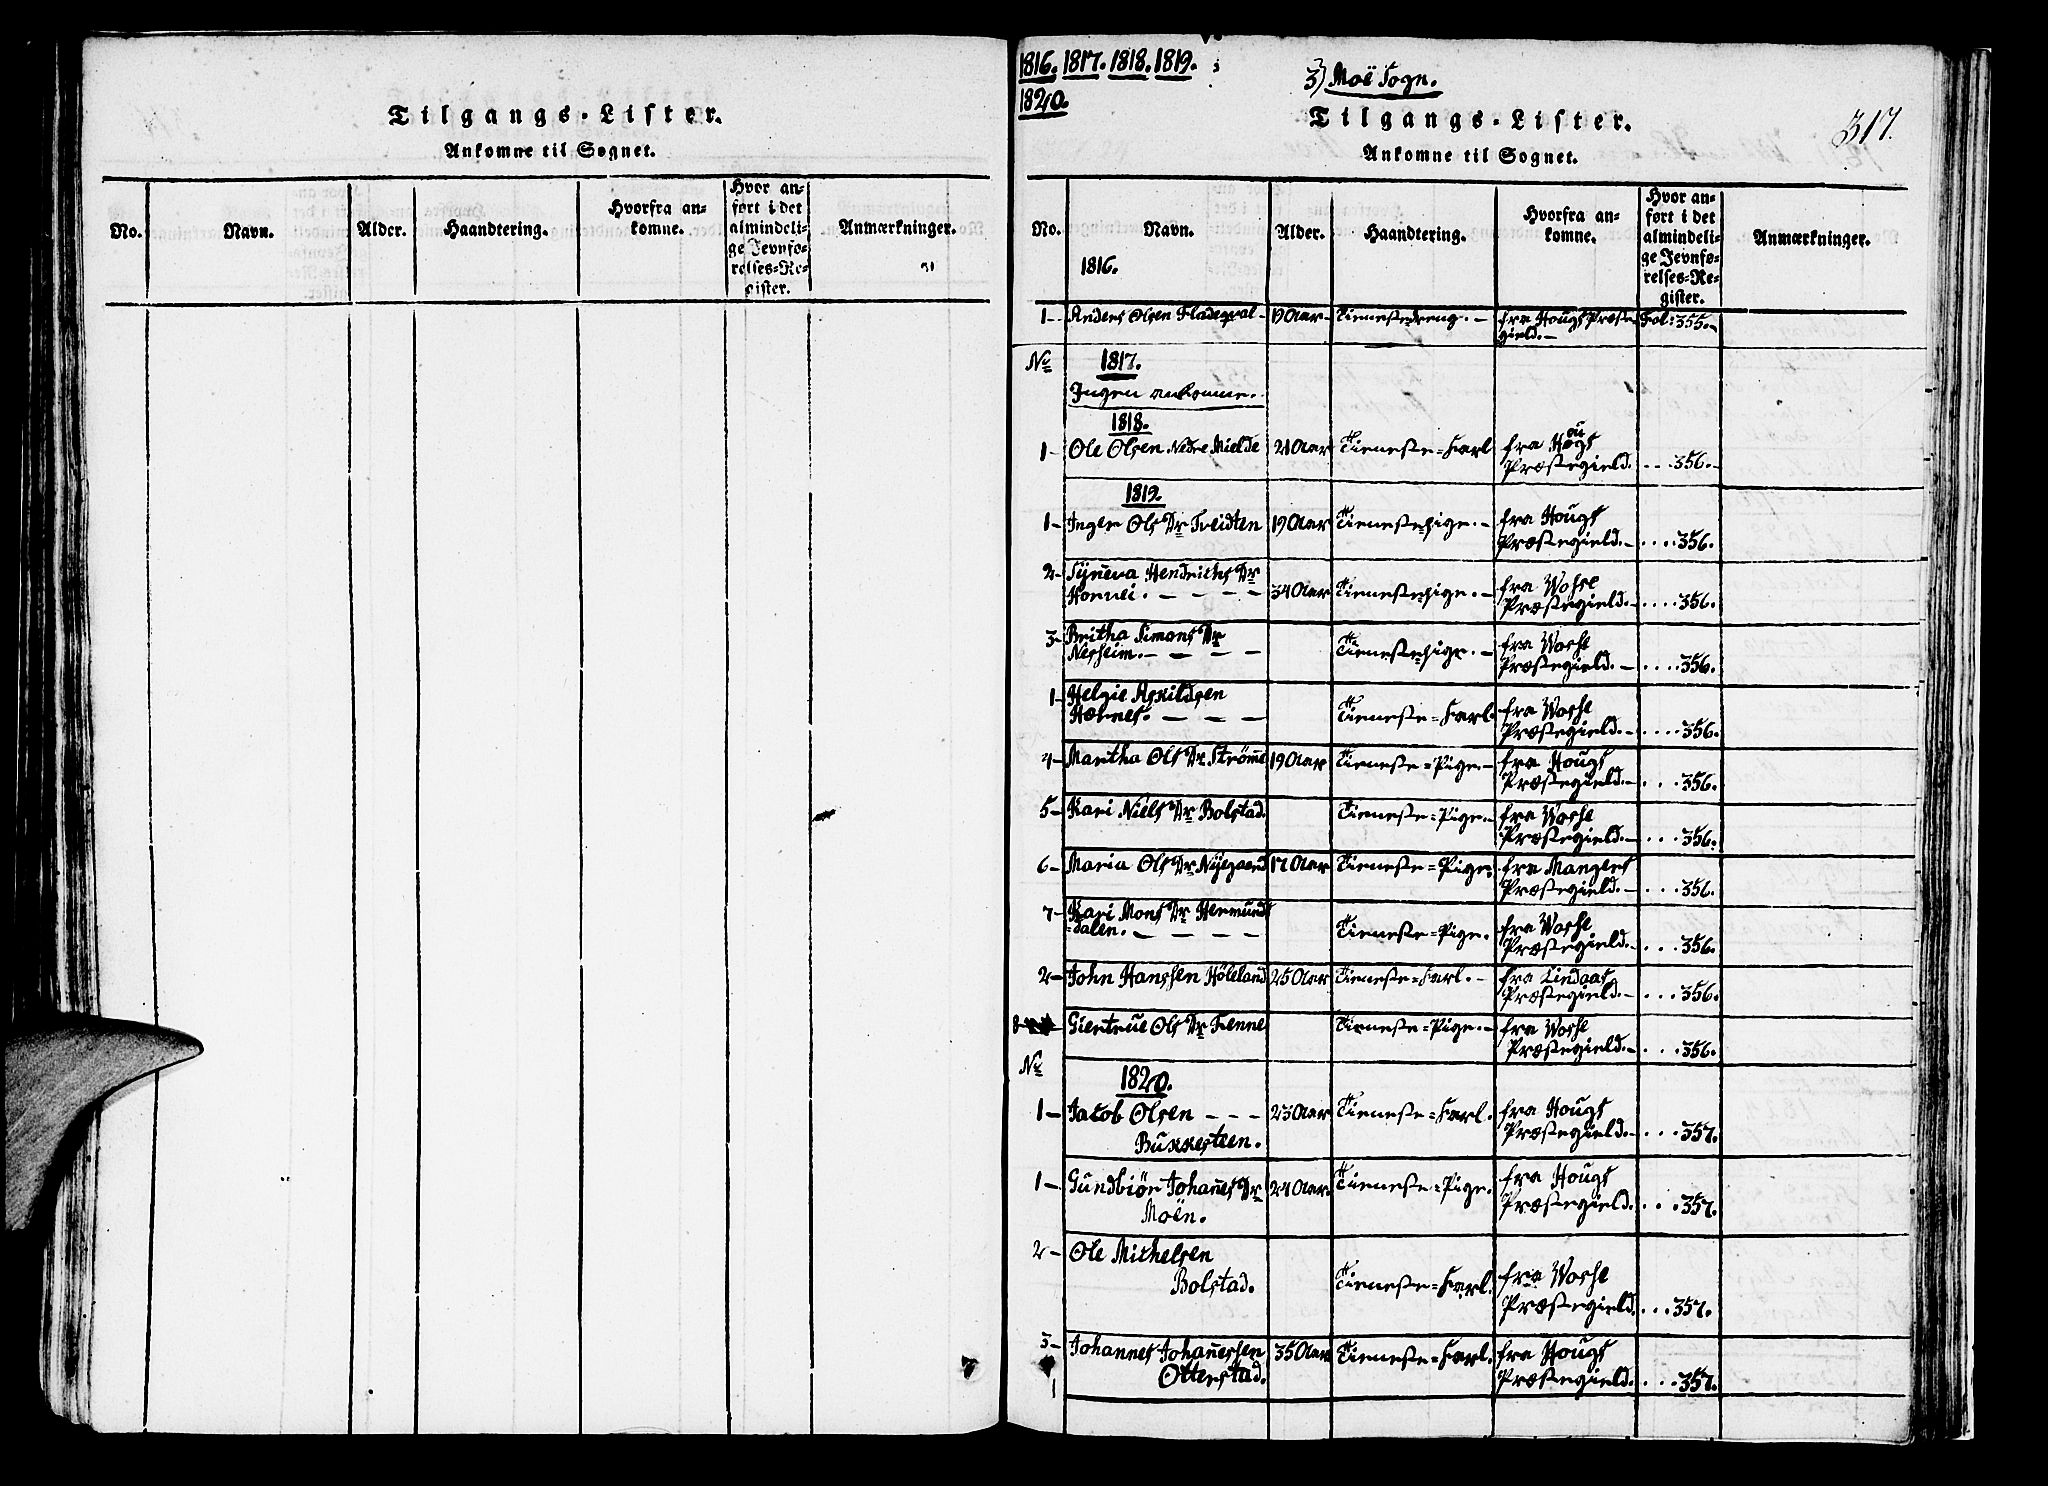 Tilgangs-Lister.
Ankomne til Sognet.
No.
Navn.
Alder.
Haandtering.
Hvorfra an-
komne.
Hvor an-
ført i det
almindeli-
ge Jevnfø-
relses-Re-
gister.
Anmærkninger.
1816. 1817. 1818. 1819.
1820.
3) Moë Sogn.
Tilgangs-Lister.
Ankomne til Sognet.
317.
No.
Navn.
Alder.
Haandtering.
Hvorfra an-
komne.
Hvor an-
ført i det
almindeli-
ge Jevnfø-
relses-Re-
gister.
Anmærkninger.
1816.
1- Anders Olsen Fladeqval- 19 Aar- Tienestedreng.- fra Hougs Præste- Fol: 355.-
gield.-
No 1817.
Ingen ankomne.
1818.
1- Ole Olsen Nedre Mielde 21 Aar Tieneste=Karl fra Hougs
Præstegield. ... 356.-
1819.
1- Inger Ols Dr Tveidten 19 Aar Tienestepige.- fra Hougs
Præstegield.- .... 356.
2- Syneva Hendrichs Dr
Hornei. - - - - 34 Aar Tienestepige.- fra Wosse
Præstegield.- .... 356.
3- Britha Simons Dr
Nesheim. - - - - Tienestepige.- fra Wosse
Præstegield.- .... 356.
1- Helgie Askildsen
Hæfnes. - - - Tieneste=Karl. fra Wosse
Præstegield.- .... 356.
4- Martha Ols Dr Strømme 19 Aar Tieneste=Pige.- fra Hougs
Præstegield.- ... 356.
5- Kari Niels Dr Bolstad. Tieneste=Pige.- fra Wosse
Præstegield.- ... 356.
6- Maria Ols Dr Nylgaard 17 Aar Tieneste=Pige. fra Mangers
Præstegield.- ... 356.
7- Kari Mons Dr Hermunds
=dalen. - - - - Tieneste=Pige. fra Wosse
Præstegield.- ... 356.
2- John Hanssen Høleland 25 Aar Tieneste=Karl.- fra Lindaas
Præstegield.- ... 356.
8 Giertrue Ols Dr Fenne Tieneste=Pige.- fra Wosse
Præstegield.- ... 356.
No 1820.
1- Jacob Olsen - - - 23 Aar Tieneste=Karl. fra Hougs
Bukkesteen. Præstegield.- ... 357.
1- Gundbiør Johanes Dr 24 Aar. Tieneste=Pige. fra Hougs
Moën. Præstegield. ... 357.
2- Ole Michelsen
Bolstad. Tieneste=Karl. fra Wosse
Præstegield. ... 357.
3- Johannes Johanessen 35 Aar Tieneste=Karl. fra Hougs
Otterstad. Præstegield. ... 357.